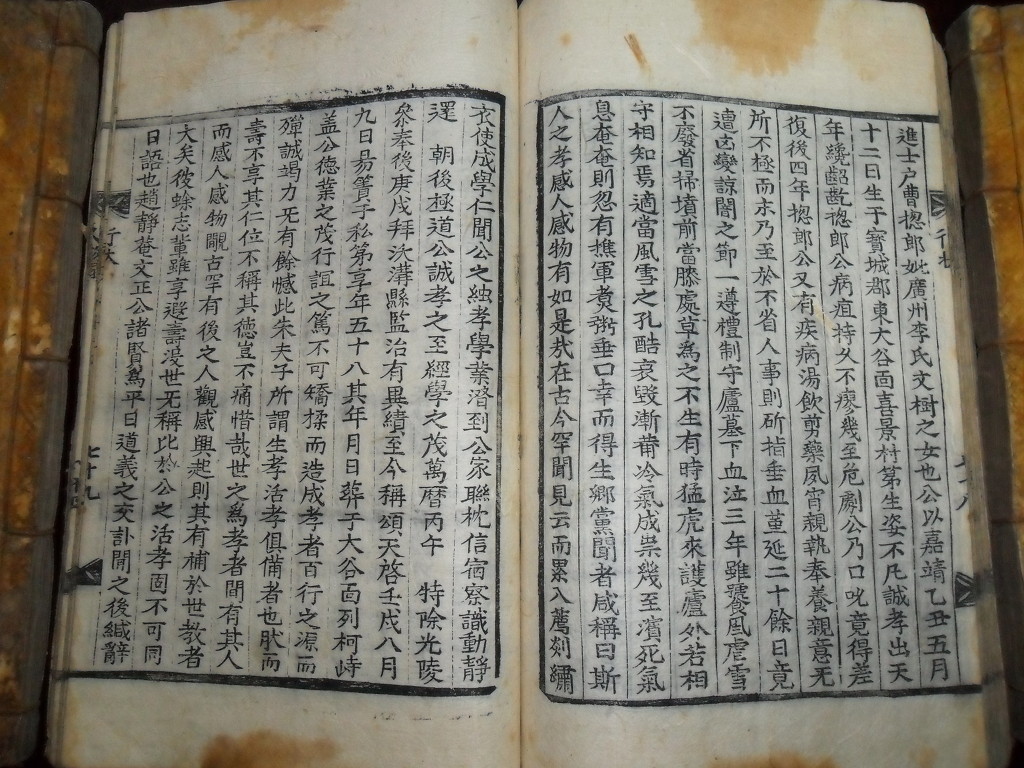 進士户曹摠郎妣廣州李氏文樹之女也公以嘉靖乙丑五月
十二日生于寳城郡東大谷面喜景村第生姿不凡誠孝出天
年纔齠齔摠郎公病疽持久不瘳幾至危劇公乃口吮竟得差
復後四年摠郎公又有疾病湯飮剪藥夙宵親執奉養親意无
所不極而末乃至於不省人事則斫指垂血堇延二十餘日竟
遭凶變諒闇之節一遵禮制守廬墓下血泣三年雖饕風虐雪
不廢省掃墳前當膝處草爲之不生有時猛虎來護廬外若相
守相知焉適當風雪之孔酷哀毀漸莆冷氣成祟幾至濱死氣
息奄奄則忽有樵軍煮粥垂口幸而得生鄉黨聞者咸稱曰斯
人之孝感人感物有如是㢤在古今罕聞見云而累入薦剡繡
衣使成學仁聞公之純孝學業濳到公家聯枕信宿察識動靜
還 朝後極道公誠孝之至經學之茂萬曆丙午 特除光陵
叅奉後庚戌拜沃溝縣監治有異績至今稱頌天啓壬戌八月
九日易簀于私第享年五十八其年月日葬于大谷面列柯峙
盖公德業之茂行誼之篤不可矯揉而造成孝者百行之源而
殫誠竭力旡有餘憾此朱夫子所謂生孝活孝俱備者也肰而
壽不享其仁位不稱其德豈不痛惜哉世之爲孝者間有其人
而感人感物覵古罕有後之人觀感興起則其有補於世教者
大矣彼蜍志輩雖享遐壽沒世旡稱比於公之活孝固不可同
日語也趙靜菴文正公諸賢爲平日道義之交訃聞之後緘辭
行狀
七十八
行狀
七十九